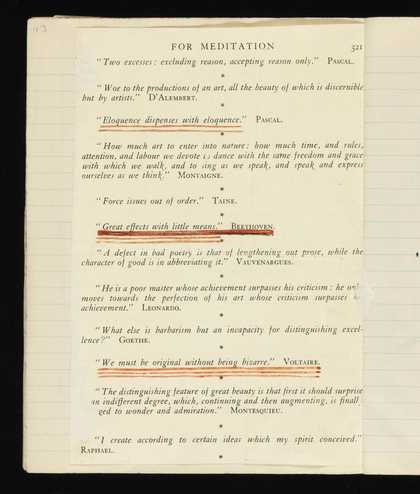 FOR MEDITATION 321
"Two excesses: excluding reason, accepting reason only." PASCAL.
*
"Woe to the productions of an art, all the beauty of which is discernible
but by artists." D'ALEMBERT.
*
"Eloquence dispenses with eloquence." PASCAL.
*
"How much art to enter into nature: how much time, and rules,
attention, and labour we devote to dance with the same freedom and grace
with which we walk, and to sing as we speak, and speak and express
ourselves as we think." MONTAIGNE.
*
"Force issues out of order." TAINE.
*
"Great effects with little means." BEETHOVEN.
*
"A defect in bad poetry is that of lengthening out prose, while the
character of good is in abbreviating it." VAUVENARGUES.
*
"He is a poor master whose achievement surpasses his criticism: he only
moves towards the perfection of his art whose criticism surpasses
achievement." LEONARDO.
*
"What else is barbarism but an incapacity for distinguishing excel-
lence?" GOETHE.
*
"We must be original without being bizarre." VOLTAIRE.
*
"The distinguishing feature of great beauty is that first it should surprise
an indifferent degree, which, continuing and then augmenting, is finall
ged to wonder and admiration." MONTESQUIEU.
*
"I create according to certain ideas which my spirit conceived."
RAPHAEL.
*